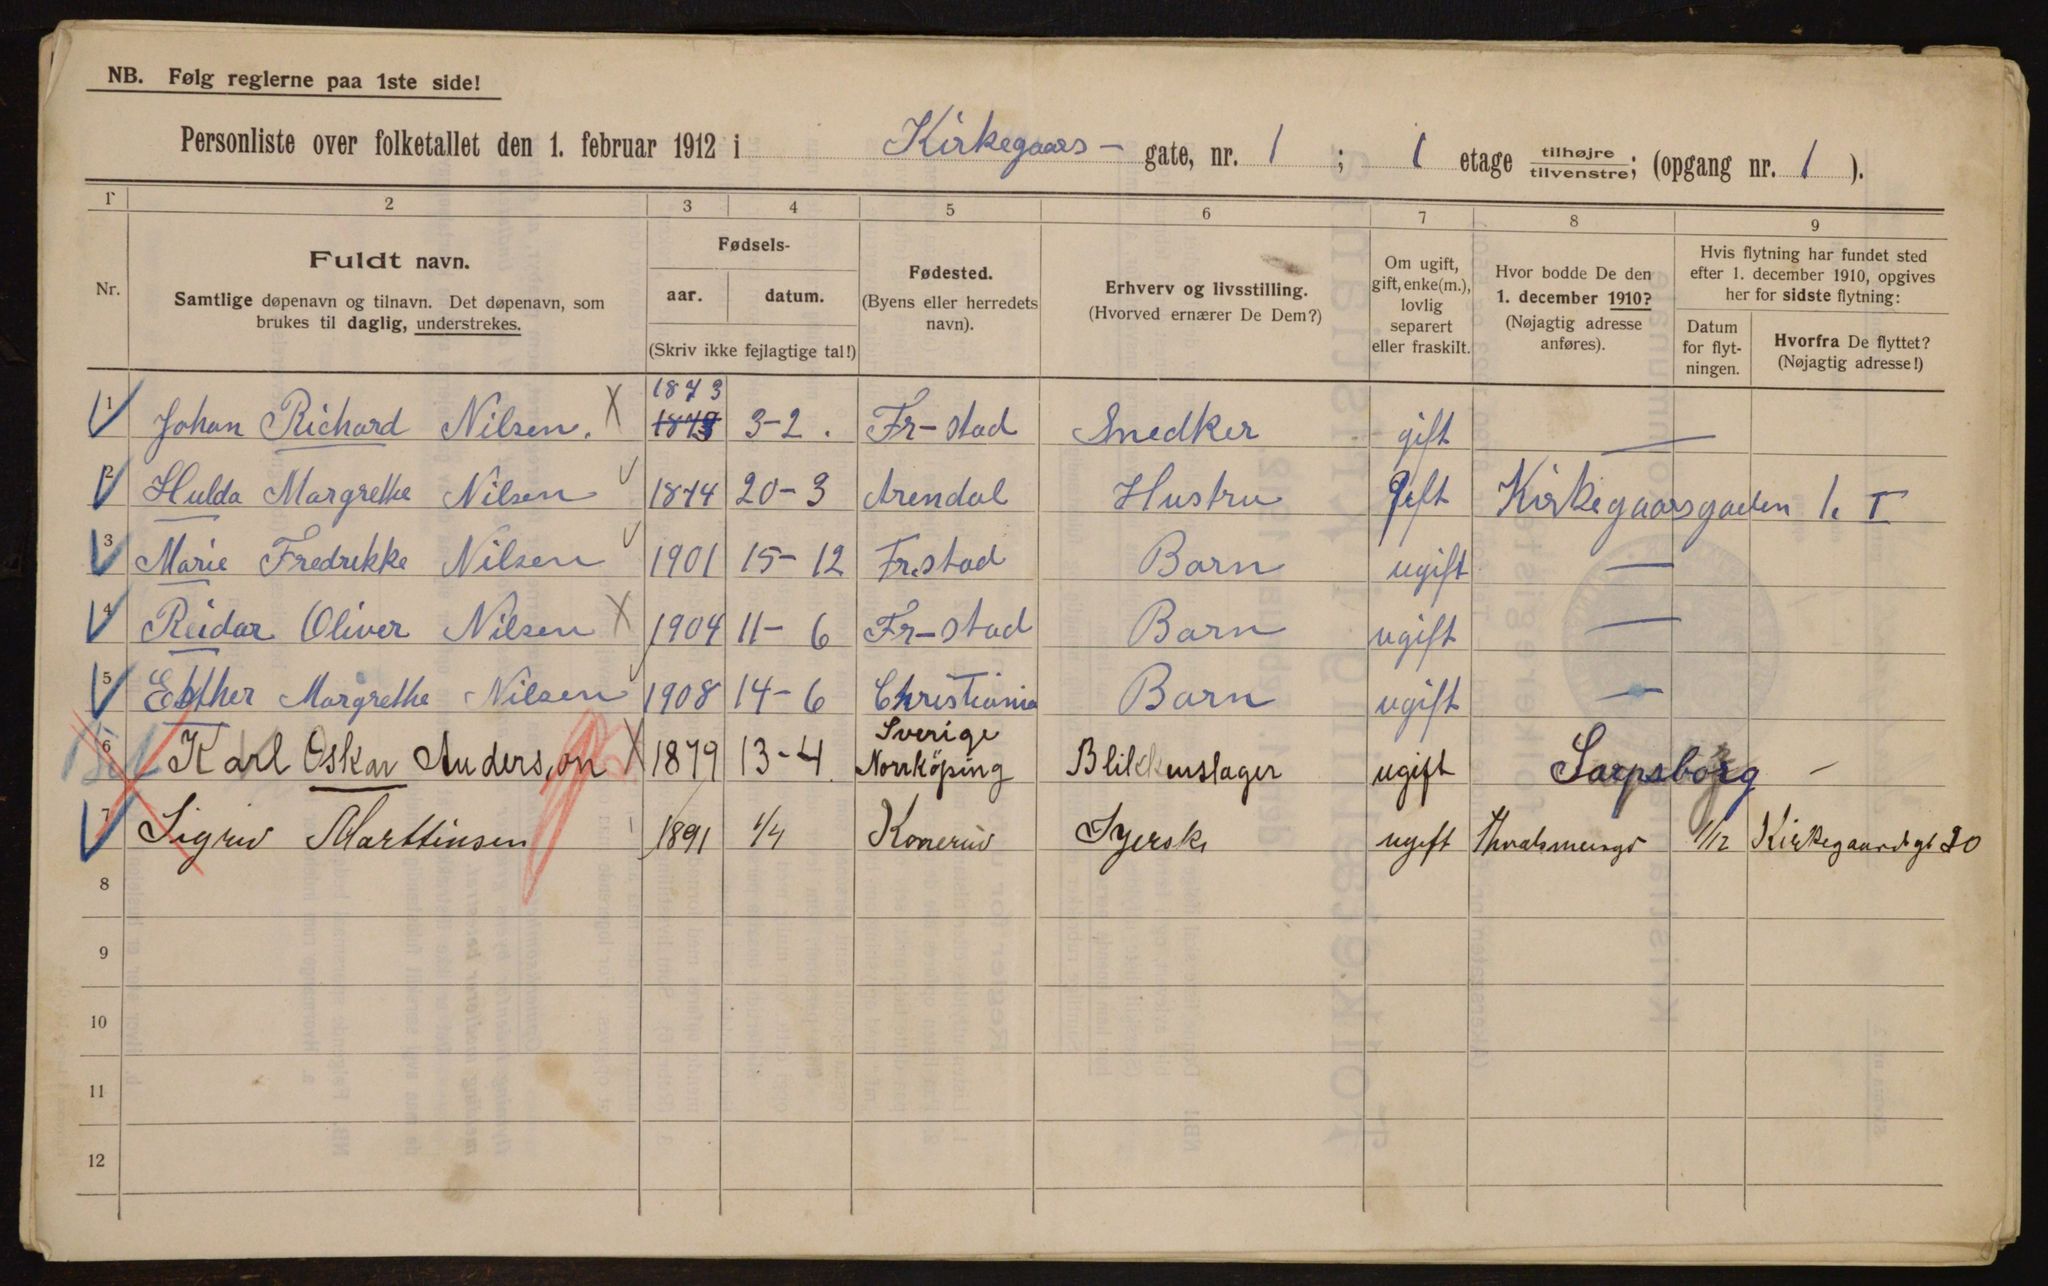 NB. Følg reglerne paa 1ste side!
Personliste over folketallet den 1. februar 1912 i Kirkegaars- gate, nr. 1 ; 1 etage tilhøjre/tilvenstre; (opgang nr. 1 ).
1 2 3 4 5 6 7 8 9
Nr.
Fuldt navn.
Samtlige døpenavn og tilnavn. Det døpenavn, som
brukes til daglig, understrekes.
Fødsels-
aar. datum.
(Skriv ikke fejlagtige tal!)
Fødested.
(Byens eller herredets
navn).
Erhverv og livsstilling.
(Hvorved ernærer De Dem?)
Om ugift,
gift, enke(m.),
lovlig
separert
eller fraskilt.
Hvor bodde De den
1. december 1910?
(Nøjagtig adresse
anføres).
Hvis flytning har fundet sted
efter 1. december 1910, opgives
her for sidste flytning:
Datum
for flyt-
ningen.
Hvorfra De flyttet?
(Nøjagtig adresse!)
1873
1 Johan Richard Nilsen. X 3-2. Fr-stad Snedker gift —
2 Hulda Margrethe Nilsen 1874 20-3 Arendal Hustru gift Kirkegaarsgaden 1. I
3 Marie Fredrikke Nilsen 1901 15-12 Fr.stad Barn ugift —
4 Reidar Oliver Nilsen X 1904 11-6 Fr-stad Barn ugift —
5 Esther Margrethe Nilsen 1908 14-6 Christiania Barn ugift —
6 Karl Oskar Anderson X 1879 13-4 Sverige Norrköping Blikkenslager ugift Sarpsborg —
7 Sigrid Marttinsen 1891 1/4 ugift 1/12 Kirkegaardsgt 20
8
9
10
11
12